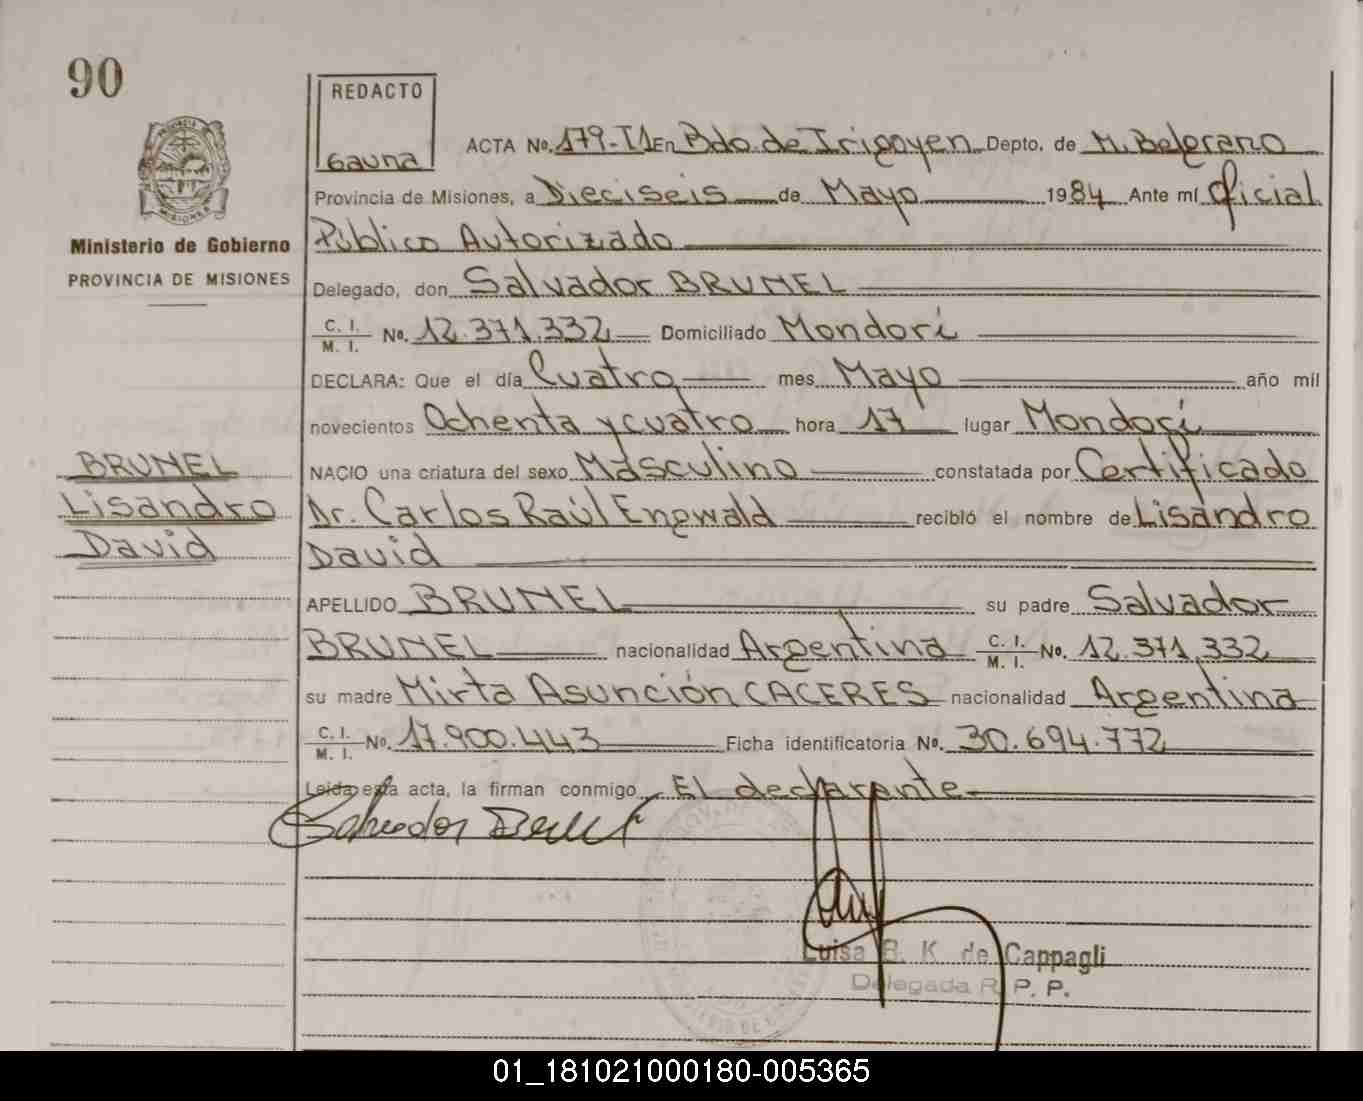 90
REDACTO
Gauna
ACTA No. 179-T1 En Bdo. de Irigoyen Depto. de M. Belgrano
Provincia de Misiones, a Dieciseis de Mayo 1984 Ante mí Oficial
Público Autorizado
Ministerio de Gobierno
PROVINCIA DE MISIONES
Delegado, don Salvador BRUNEL
C. I.
M. I. No. 12.371.332 Domiciliado Mondorí
DECLARA: Que el día Cuatro mes Mayo año mil
novecientos Ochenta y cuatro hora 17 lugar Mondorí
BRUNEL
Lisandro
David
NACIO una criatura del sexo Masculino constatada por Certificado
Dr. Carlos Raúl Enewald recibió el nombre de Lisandro
David
APELLIDO BRUNEL su padre Salvador
BRUNEL nacionalidad Argentina C. I. M. I. No. 12.371.332
su madre Mirta Asunción CACERES nacionalidad Argentina
C. I.
M. I. No. 17.900.443 Ficha identificatoria No. 30.694.772
Leída esta acta, la firman conmigo El declarante
Luisa B. K. de Cappagli
Delegada R. P. P.
01_181021000180-005365